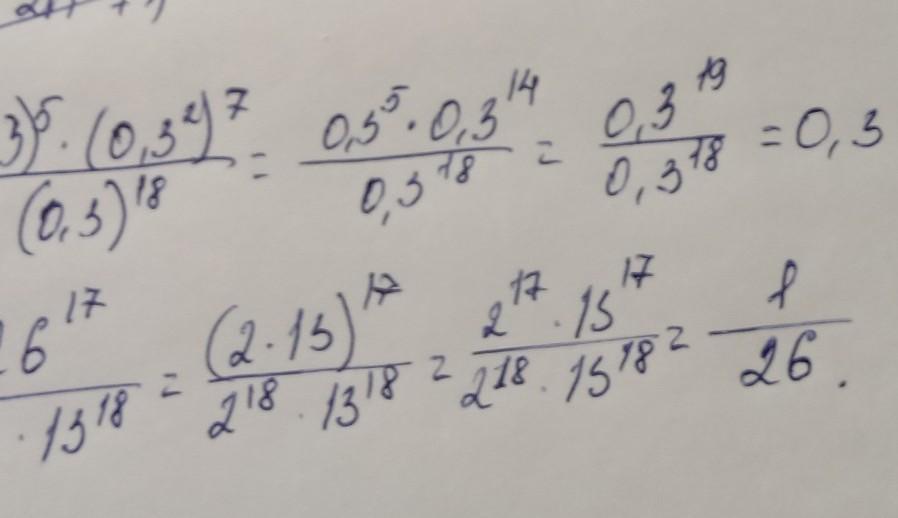 3)^5 · (0,3^2)^7 / (0,3)^18 = 0,3^5 · 0,3^14 / 0,3^18 = 0,3^19 / 0,3^18 = 0,3
26^17 / · 13^18 = (2 · 13)^17 / 2^18 · 13^18 = 2^17 · 13^17 / 2^18 · 13^18 = 1 / 26.